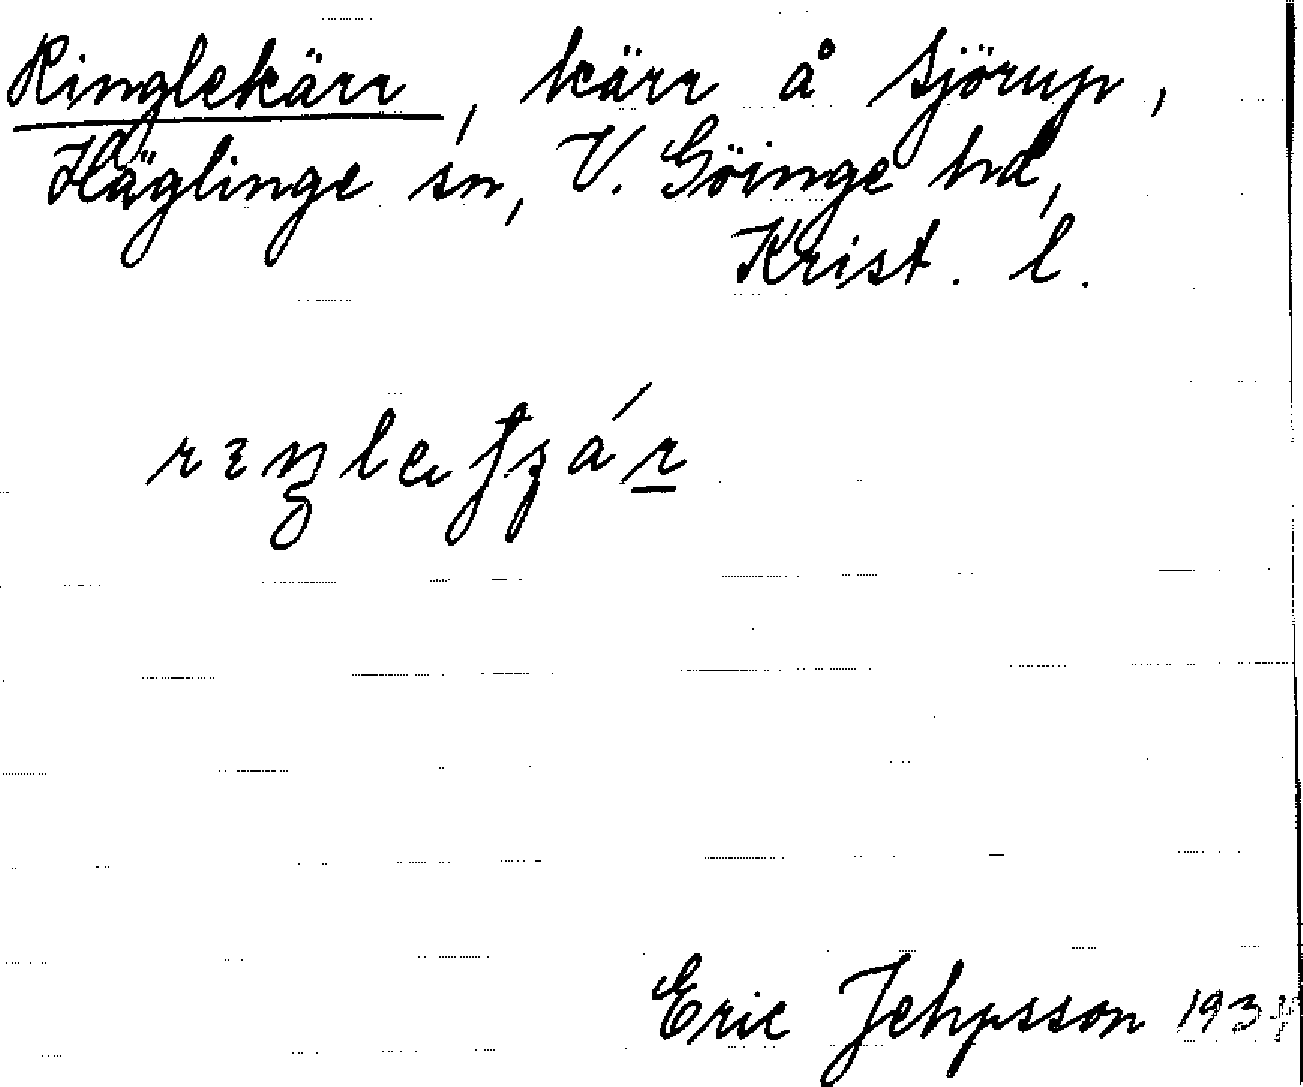 Ringlekärr, kärr å Sjörup,
Häglinge sn, V. Göinge hd,
Krist. l.
Eric Jehpsson